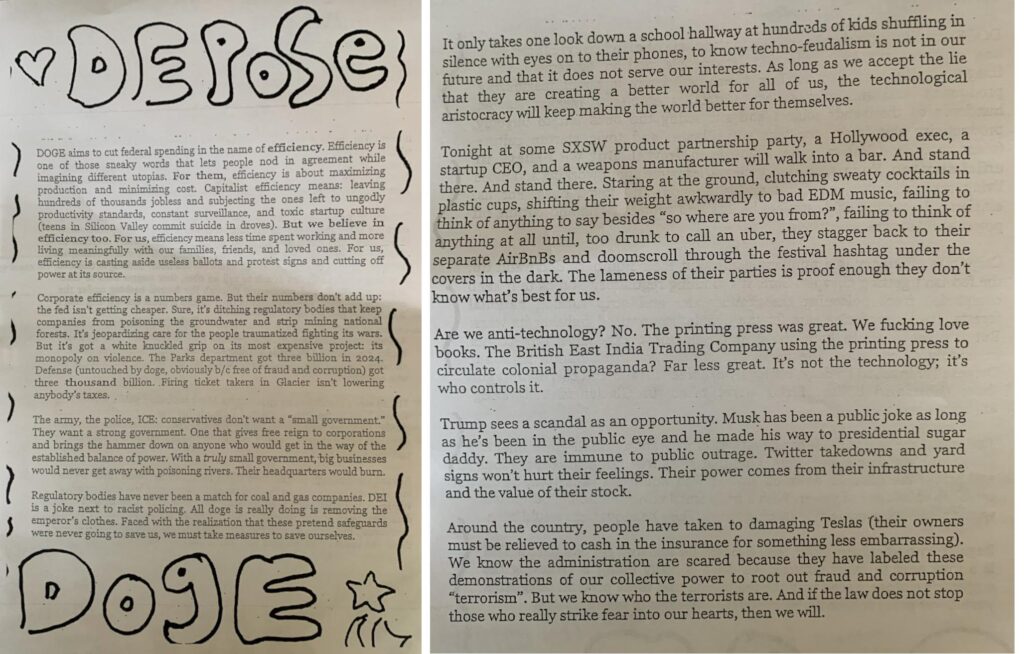 DEPOSE
DOGE aims to cut federal spending in the name of efficiency. Efficiency is
one of those sneaky words that lets people nod in agreement while
imagining different utopias. For them, efficiency is about maximizing
production and minimizing cost. Capitalist efficiency means: leaving
hundreds of thousands jobless and subjecting the ones left to ungodly
productivity standards, constant surveillance, and toxic startup culture
(teens in Silicon Valley commit suicide in droves). But we believe in
efficiency too. For us, efficiency means less time spent working and more
living meaningfully with our families, friends, and loved ones. For us,
efficiency is casting aside useless ballots and protest signs and cutting off
power at its source.
Corporate efficiency is a numbers game. But their numbers don't add up:
the fed isn't getting cheaper. Sure, it's ditching regulatory bodies that keep
companies from poisoning the groundwater and strip mining national
forests. It's jeopardizing care for the people traumatized fighting its wars.
But it's got a white knuckled grip on its most expensive project: its
monopoly on violence. The Parks department got three billion in 2024.
Defense (untouched by doge, obviously b/c free of fraud and corruption) got
three thousand billion. Firing ticket takers in Glacier isn't lowering
anybody's taxes.
The army, the police, ICE: conservatives don't want a "small government."
They want a strong government. One that gives free reign to corporations
and brings the hammer down on anyone who would get in the way of the
established balance of power. With a truly small government, big businesses
would never get away with poisoning rivers. Their headquarters would burn.
Regulatory bodies have never been a match for coal and gas companies. DEI
is a joke next to racist policing. All doge is really doing is removing the
emperor's clothes. Faced with the realization that these pretend safeguards
were never going to save us, we must take measures to save ourselves.
DOGE
It only takes one look down a school hallway at hundreds of kids shuffling in
silence with eyes on to their phones, to know techno-feudalism is not in our
future and that it does not serve our interests. As long as we accept the lie
that they are creating a better world for all of us, the technological
aristocracy will keep making the world better for themselves.
Tonight at some SXSW product partnership party, a Hollywood exec, a
startup CEO, and a weapons manufacturer will walk into a bar. And stand
there. And stand there. Staring at the ground, clutching sweaty cocktails in
plastic cups, shifting their weight awkwardly to bad EDM music, failing to
think of anything to say besides "so where are you from?", failing to think of
anything at all until, too drunk to call an uber, they stagger back to their
separate AirBnBs and doomscroll through the festival hashtag under the
covers in the dark. The lameness of their parties is proof enough they don't
know what's best for us.
Are we anti-technology? No. The printing press was great. We fucking love
books. The British East India Trading Company using the printing press to
circulate colonial propaganda? Far less great. It's not the technology; it's
who controls it.
Trump sees a scandal as an opportunity. Musk has been a public joke as long
as he's been in the public eye and he made his way to presidential sugar
daddy. They are immune to public outrage. Twitter takedowns and yard
signs won't hurt their feelings. Their power comes from their infrastructure
and the value of their stock.
Around the country, people have taken to damaging Teslas (their owners
must be relieved to cash in the insurance for something less embarrassing).
We know the administration are scared because they have labeled these
demonstrations of our collective power to root out fraud and corruption
"terrorism". But we know who the terrorists are. And if the law does not stop
those who really strike fear into our hearts, then we will.